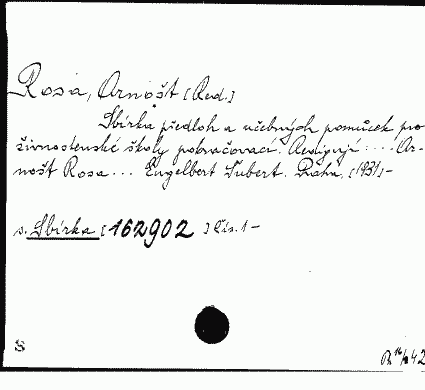 Rosa, Arnošt [Red.]
Sbírka předloh a učebných pomůcek pro
živnostenské školy pokračovací. Redigují .... Ar-
nošt Rosa... Engelbert Šubert. Praha, [1931]-
v. Sbírka [162902] Čís. 1 -
S
42